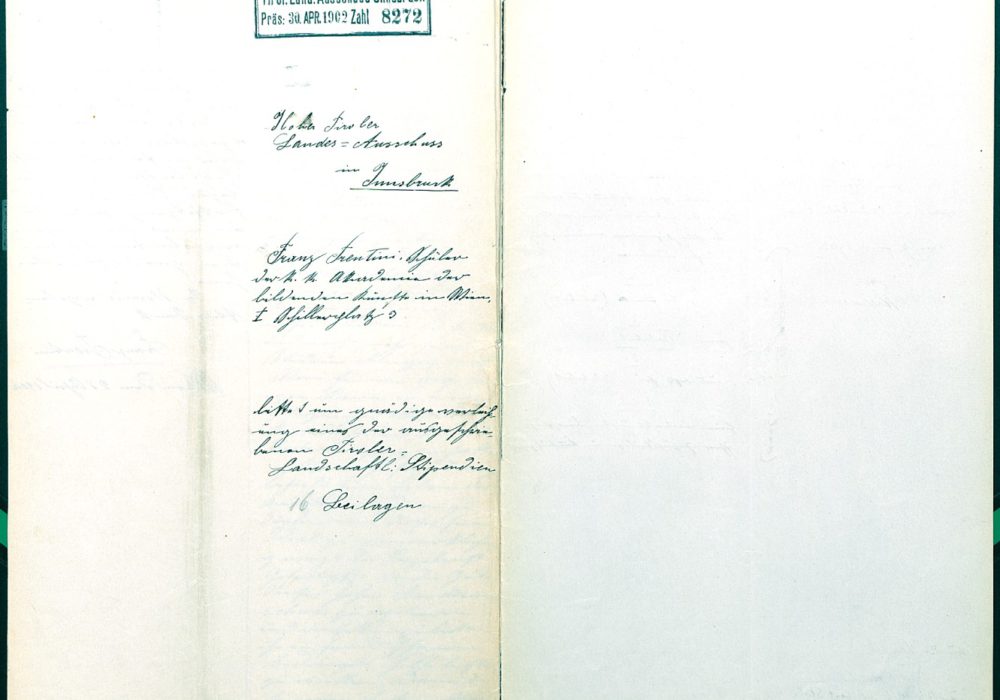 Tirol. Land. Ausschuss Innsbruck
Präs: 30. APR. 1902 Zahl 8272
Hoher Tiroler
Landes=Ausschuss
in
Innsbruck
Franz Trentini, Schüler
der k. k. Akademie der
bildenden Künste in Wien,
I Schillerplatz 3
bittet um gnädige verleih-
ung eines der ausgeschrie-
benen Tiroler-
Landschaftl: Stipendien
16 Beilagen